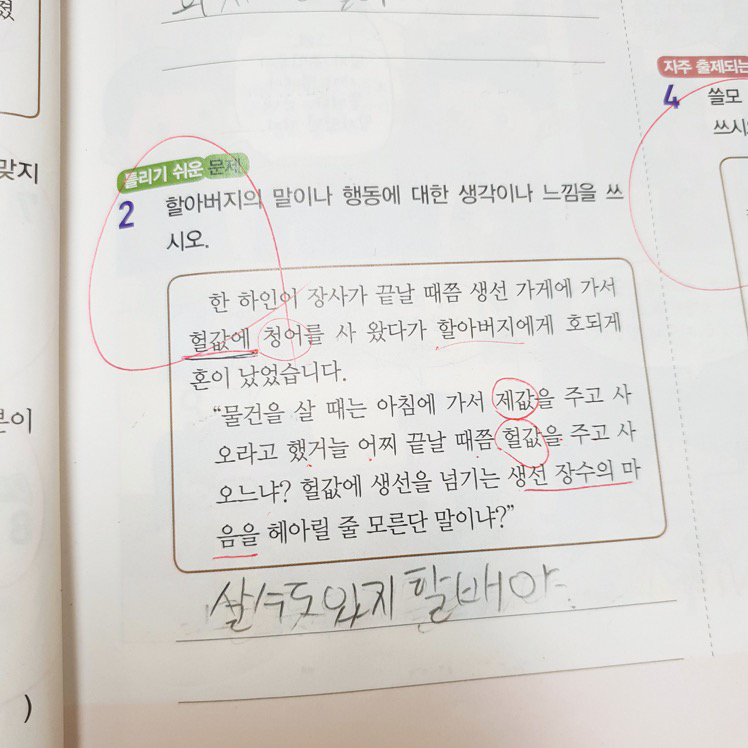 졌
맞지
분이
)
틀리기 쉬운 문제
2 할아버지의 말이나 행동에 대한 생각이나 느낌을 쓰
시오.
한 하인이 장사가 끝날 때쯤 생선 가게에 가서
헐값에 청어를 사 왔다가 할아버지에게 호되게
혼이 났었습니다.
“물건을 살 때는 아침에 가서 제값을 주고 사
오라고 했거늘 어찌 끝날 때쯤 헐값을 주고 사
오느냐? 헐값에 생선을 넘기는 생선 장수의 마
음을 헤아릴 줄 모른단 말이냐?”
살수도 있지 할배야.
자주 출제되는
4 쓸모
쓰시오